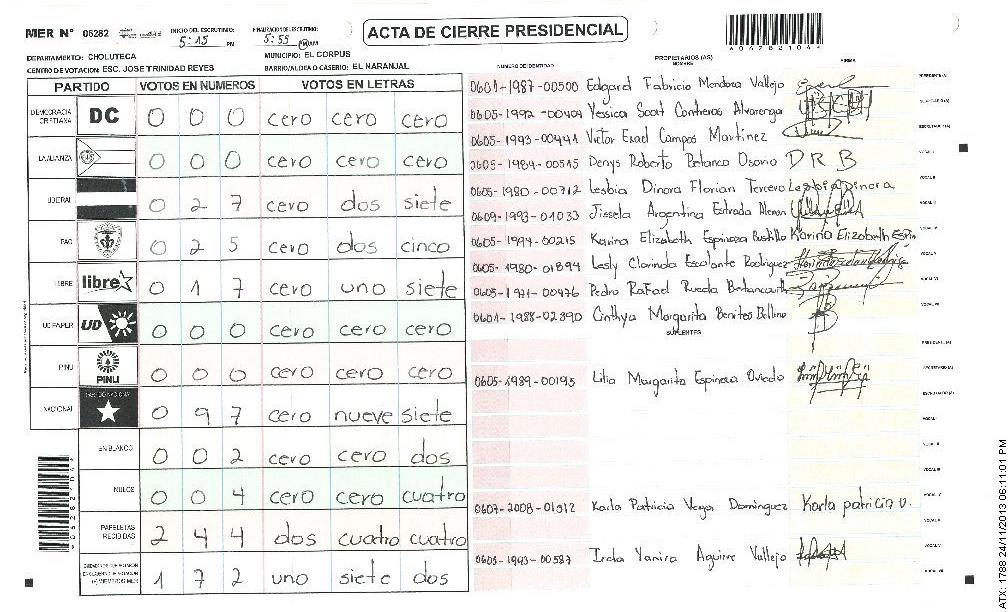 MER Nº 05282
INICIO DEL ESCRUTINIO: 5:15 PM
FINALIZACION DEL ESCRUTINIO: 5:59 PM AM
ACTA DE CIERRE PRESIDENCIAL
DEPARTAMENTO: CHOLUTECA
MUNICIPIO: EL CORPUS
CENTRO DE VOTACION: ESC. JOSE TRINIDAD REYES
BARRIO/ALDEA O CASERIO: EL NARANJAL
PARTIDO VOTOS EN NUMEROS VOTOS EN LETRAS
DEMOCRACIA CRISTIANA DC 0 0 0 cero cero cero
LA ALIANZA 0 0 0 cero cero cero
LIBERAL 0 2 7 cero dos siete
PAC 0 2 5 cero dos cinco
LIBRE libre 0 1 7 cero uno siete
UD FAPER UD 0 0 0 cero cero cero
PINU PINU 0 0 0 cero cero cero
NACIONAL PARTIDO NACIONAL 0 9 7 cero nueve siete
EN BLANCO 0 0 2 cero cero dos
NULOS 0 0 4 cero cero cuatro
PAPELETAS RECIBIDAS 2 4 4 dos cuatro cuatro
1 7 2 uno siete dos
NUMERO DE IDENTIDAD
PROPIETARIOS (AS)
NOMBRE
FIRMA
0601-1987-00500 Edgard Fabricio Mendoza Vallejo
0605-1992-00404 Yessica Scat Contreras Alvarenga
0605-1993-00441 Victor Esad Campos Martinez
0605-1984-00515 Denys Roberto Betanco Osorio D R B
0605-1980-00712 Lesbia Dinora Florian Tercero Lesbia Dinora
0609-1993-01033 Jissela Argentina Estrada
0605-1994-00215 Karina Elizabeth Espinoza Bustillo Karina Elizabeth
0605-1980-01894 Lesly Clarinda Escalante Rodriguez
0605-1971-00476 Pedro Rafael Rueda Betancourth
0601-1988-02890 Cinthya Margarita Benites
SUPLENTES
0605-1989-00195 Lilia Margarita Espinoza Oviedo
0607-2008-01512 Karla Patricia Vega Dominguez Karla patricia v.
0605-1993-00587 Irela Yanira Aguirre Vallejo
ATX: 1788 24/11/2013 06:11:01 PM